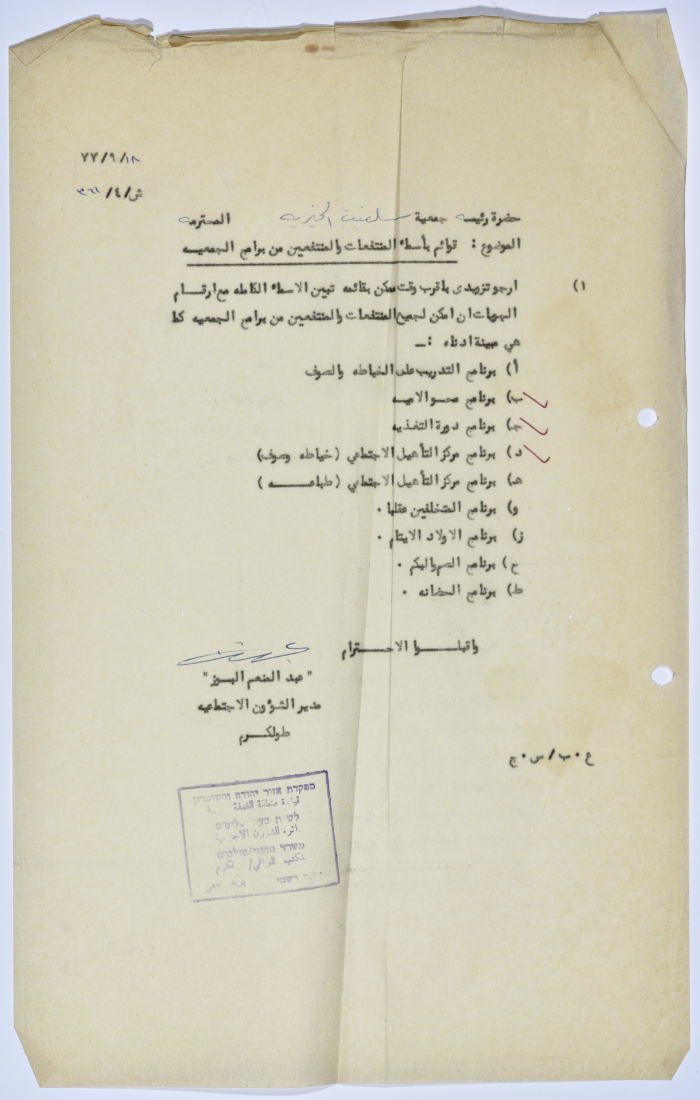 ٧٧/٩/١٨
ش/٤/٣٦١
حضرة رئيسه جمعية سلفيت الخيريه المحترمه
الموضوع : قوائم بأسماء المنتفعات والمنتفعين من برامج الجمعيـه
١) ارجو تزويدى باقرب وقت ممكن بقائمه تبين الاسماء الكامله مع ارقـام
الهويات ان امكن لجميع المنتفعات والمنتفعين من برامج الجمعيه كما
هي مبينة ادناه :ـ
أ) برنامج التدريب على الخياطه والصوف
ب) برنامج محـو الاميـه
جـ) برنامج دورة التغذيه
د) برنامج مركز التأهيل الاجتماعي (خياطه وصوف)
هـ) برنامج مركز التأهيل الاجتماعي (طباعـــه )
و) برنامج المتخلفين عقليا .
ز) برنامج الاولاد الايتام .
ح) برنامج الصم والبكم .
ط) برنامج الحضانه .
واقبلـــوا الاحـــترام
"عبد المنعم البـوز"
مدير الشؤون الاجتماعيه
طولكـرم
ع.ب/س.ج
מפקדת אזור יהודה והשומרון
قيادة منطقة الضفة